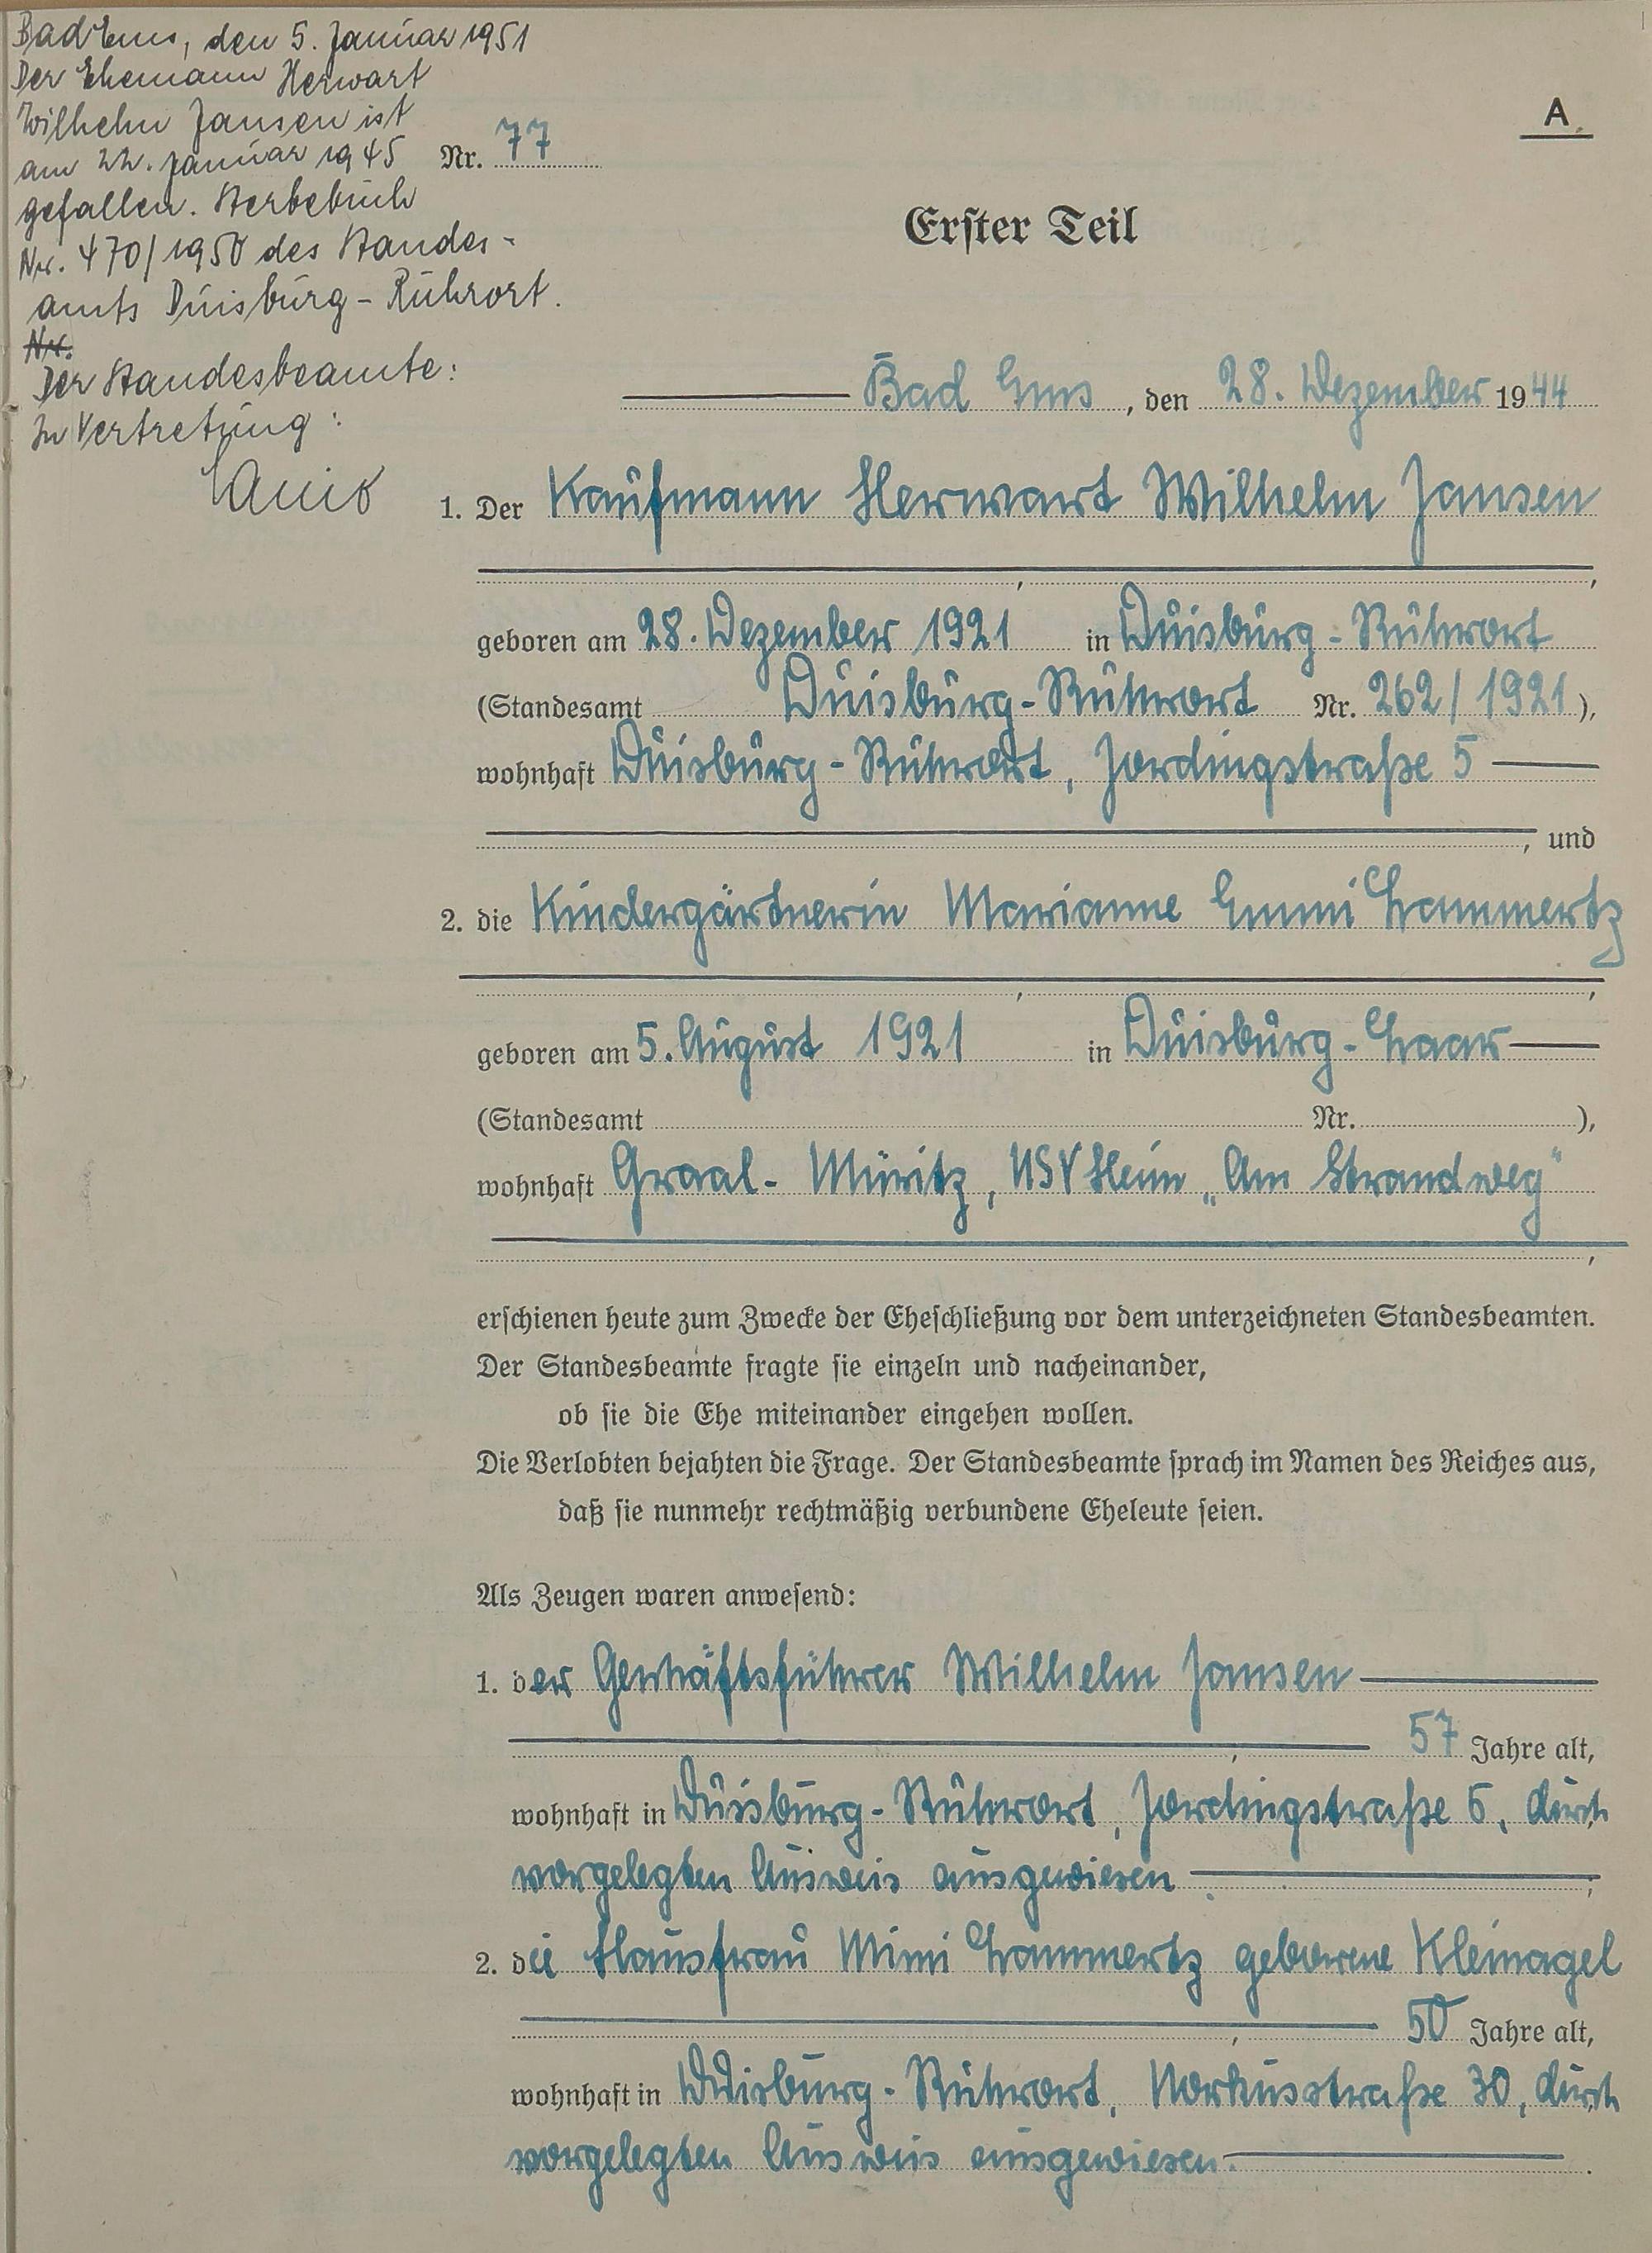 Bad Ems, den 5. Januar 1951
Der Ehemann Herwart
Wilhelm Jansen ist
am 22. Januar 1945
gefallen. Sterbebuch
Nr. 470/1950 des Standes-
amts Duisburg-Ruhrort.
Nr.
Der Standesbeamte:
In Vertretung:
A.
Nr. 77
Erster Teil
Bad Ems, den 28. Dezember 1944
1. Der Kaufmann Herwart Wilhelm Jansen
,
geboren am 28. Dezember 1921 in Duisburg-Ruhrort
(Standesamt Duisburg-Ruhrort Nr. 262/1921),
wohnhaft Duisburg-Ruhrort, Jordingstraße 5
, und
2. die Kindergärtnerin Marianne Emmi Lammertz
,
geboren am 5. August 1921 in Duisburg-Laar
(Standesamt Nr. ),
wohnhaft Graal-Müritz, NSV Heim „Am Strandweg"
,
erschienen heute zum Zwecke der Eheschließung vor dem unterzeichneten Standesbeamten.
Der Standesbeamte fragte sie einzeln und nacheinander,
ob sie die Ehe miteinander eingehen wollen.
Die Verlobten bejahten die Frage. Der Standesbeamte sprach im Namen des Reiches aus,
daß sie nunmehr rechtmäßig verbundene Eheleute seien.
Als Zeugen waren anwesend:
1. der Geschäftsführer Wilhelm Jansen
57 Jahre alt,
wohnhaft in Duisburg-Ruhrort, Jordingstraße 5, durch
vorgelegten Ausweis ausgewiesen
2. die Hausfrau Mimi Lammertz geborene Kleinagel
50 Jahre alt,
wohnhaft in Duisburg-Ruhrort, Norkusstraße 30, durch
vorgelegten Ausweis ausgewiesen.